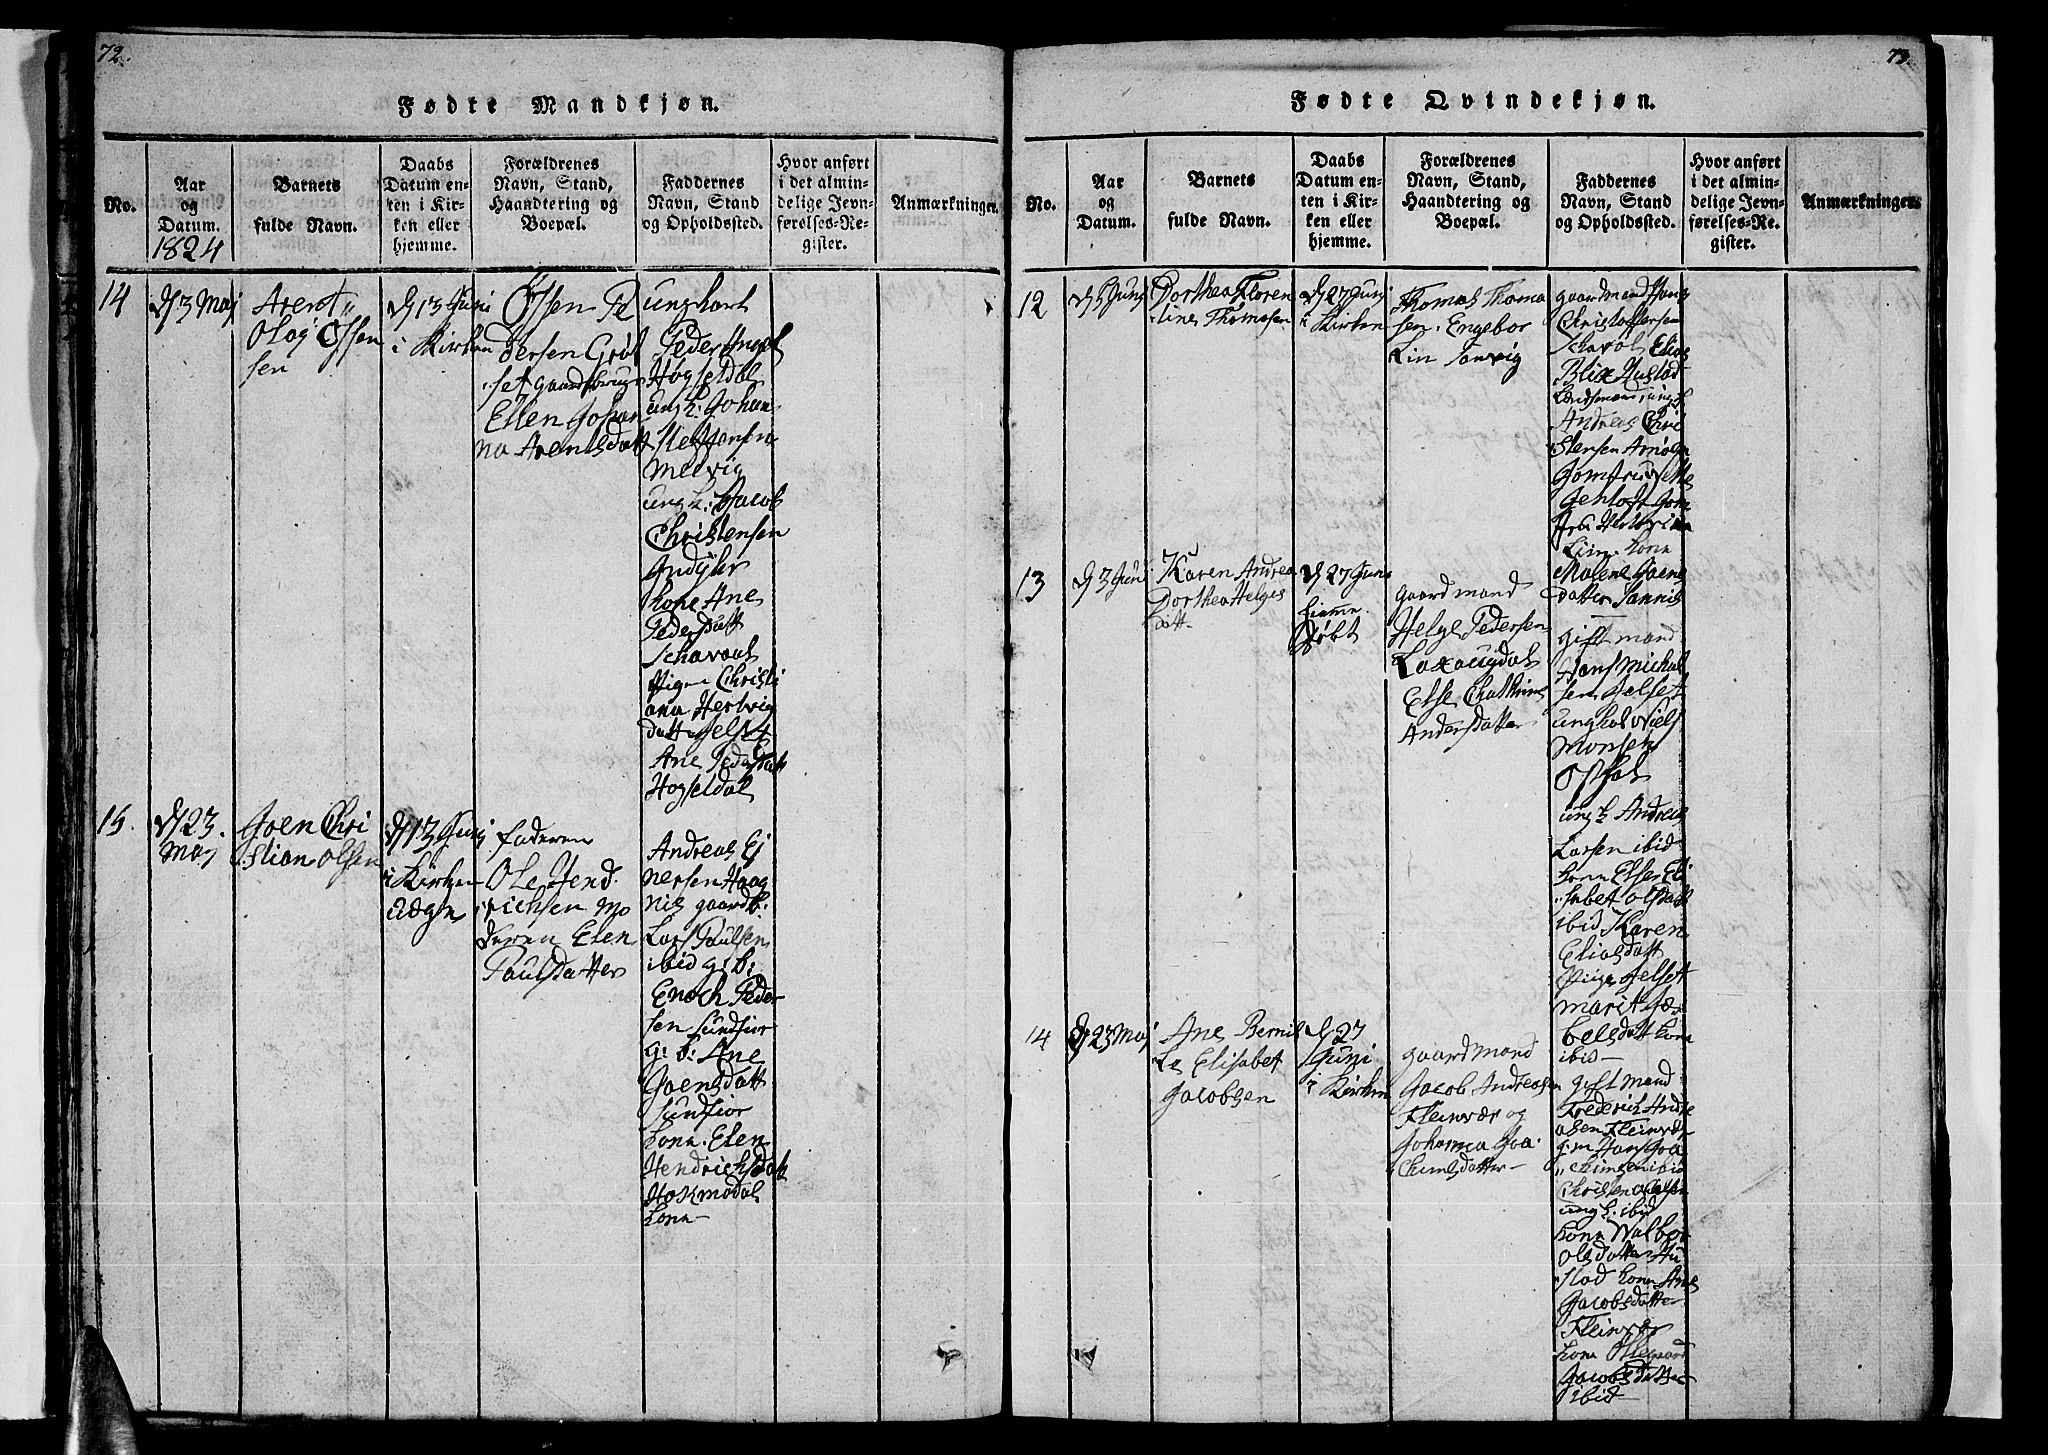 72.
Fødte Mandkjøn.
No.
Aar
og
Datum.
1824
Barnets
fulde Navn.
Daabs
Datum en-
ten i Kir-
ken eller
hjemme.
Forældrenes
Navn, Stand,
Haandtering og
Boepæl.
Faddernes
Navn, Stand
og Opholdssted.
Hvor anført
i det almin-
delige Jevn-
førelses-Re-
gister.
Anmærkninger.
14
d 3 Maj
Arent
Olaj Ossen
sen
d 13 Juni
i Kirken
Ossen Pe
dersen Grøt
set gaardbruger
Ellen Johan
na Arentsdatt
ungkarl
Peder
Hogseldal
ung k: Johan
Steffensen
Melvig
ung k: Jacob
Christensen
kone Ane
Pedersdatt
Schavaal
Pigen Christi
ana Hertvig
datt Jelset
Ane Pedersdatt
Hogseldal
15.
d 23.
Maj
Joen Chri
stian Olsen
d 13 Juni
i Kirken
ægte
faderen
Ole Hend
richsen Mo
deren Elen
Paulsdatter
Andreas Ej
nersen Haag
nis gaardb.
Lars Paulsen
ibid g: b:
Enoch Peder
sen Sundfior
g: b: Ane
Joensdatt
Sundfior
kone. Elen
Hendrichsdatt
Hokmodal
kone—
73.
Fødte Qvindekjøn.
No.
Aar
og
Datum.
Barnets
fulde Navn.
Daabs
Datum en-
ten i Kir-
ken eller
hjemme.
Forældrenes
Navn, Stand,
Haandtering og
Boepæl.
Faddernes
Navn, Stand
og Opholdssted.
Hvor anført
i det almin-
delige Jevn-
førelses-Re-
gister.
Anmærkninger.
12
d 5 Juni
Dorthea Floren
tine Thomasen
d 27 Juni
i Kirken
Thomas Thoma
sen. Engebor
Lin Sanvig
gaardmand Hans
Christoffersen
Schavøl Elias
Blix Hustad
Lensmand, ung k
Andreas Chri
stensen Arnøen
Jomfru
Jentoft Jom
fru Hertvigina
Lin. kone
Malene Joens
datter Sannis
13
d 3 Juni
Karen Andrea
Dorthea Helges
datt.
d 27 Juni
hieme
døbt
gaardmand
Helge Pedersen
Laxaugdal
Else Chathrine
Andersdatter
gift mand
Hans Michel
sen Jelset
ungkal Niels
Monsen
Opsal
ung k Andreas
Larsen ibid
kone Else Eli
sabet Olsdatt
ibid Karen
Eliasdatt
Pige Jelset
Marit Ja
belsdatt kone
ibid—
14
d 23 Maj
Ane Bernil
le Elisabet
Jacobsen
d 27
Juni
i Kirken
gaardmand
Jacob Andreasen
Fleinvær og
Johanna Joa
chimsdatter—
gift mand
Frederich Andre
asen Fleinvær
g: m Hans Joa
chimsen ibid
Christen Olsen
ung k. ibid
kone Walbor
Olsdatter Hu
stad kone Ane
Jacobsdatter
Fleinvær
kone Ollegaard
Jacobsdatter
ibid